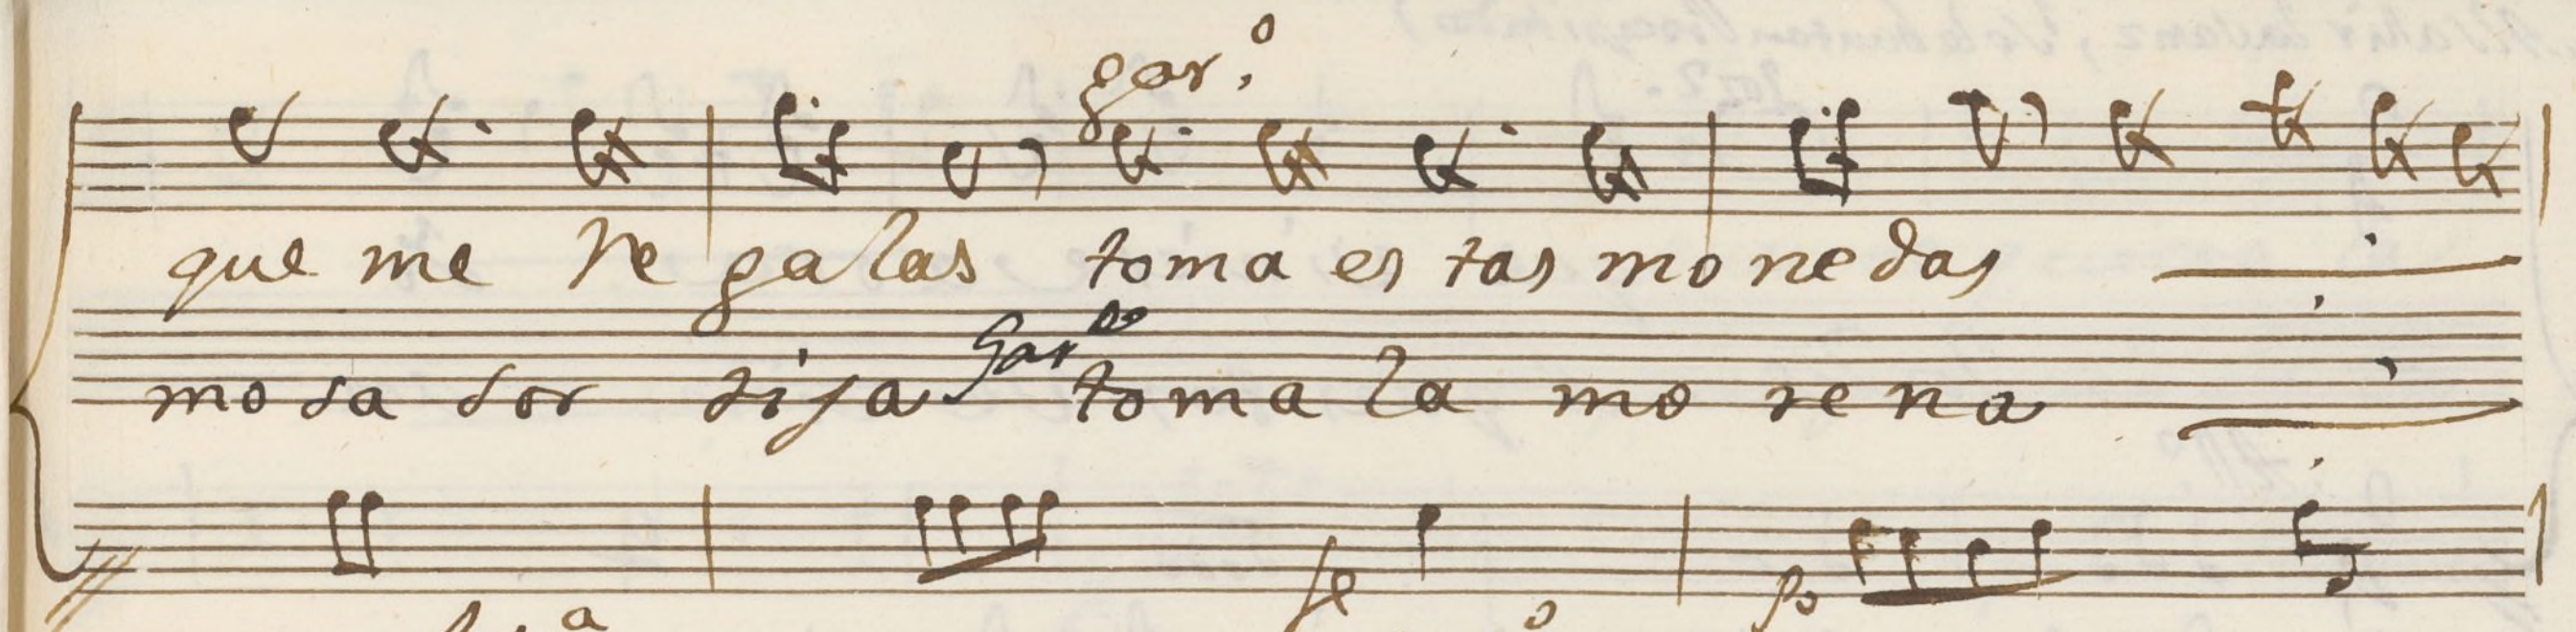 gar.º
que me Re galas toma es tas mo nedas
Garº
mo sa sor tija toma la mo rena
fe po
a